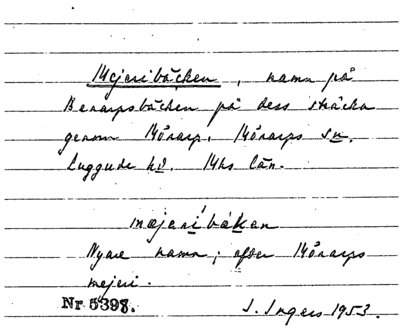 Mejeribäcken, namn på
Benarpsbäcken på dess sträcka
genom Mörarp. Mörarps sn.
Luggude hd. Mhs län.
mæjaribákan
Nyare namn; efter Mörarps
mejeri.
Nr 5398. I. Ingers 1953.